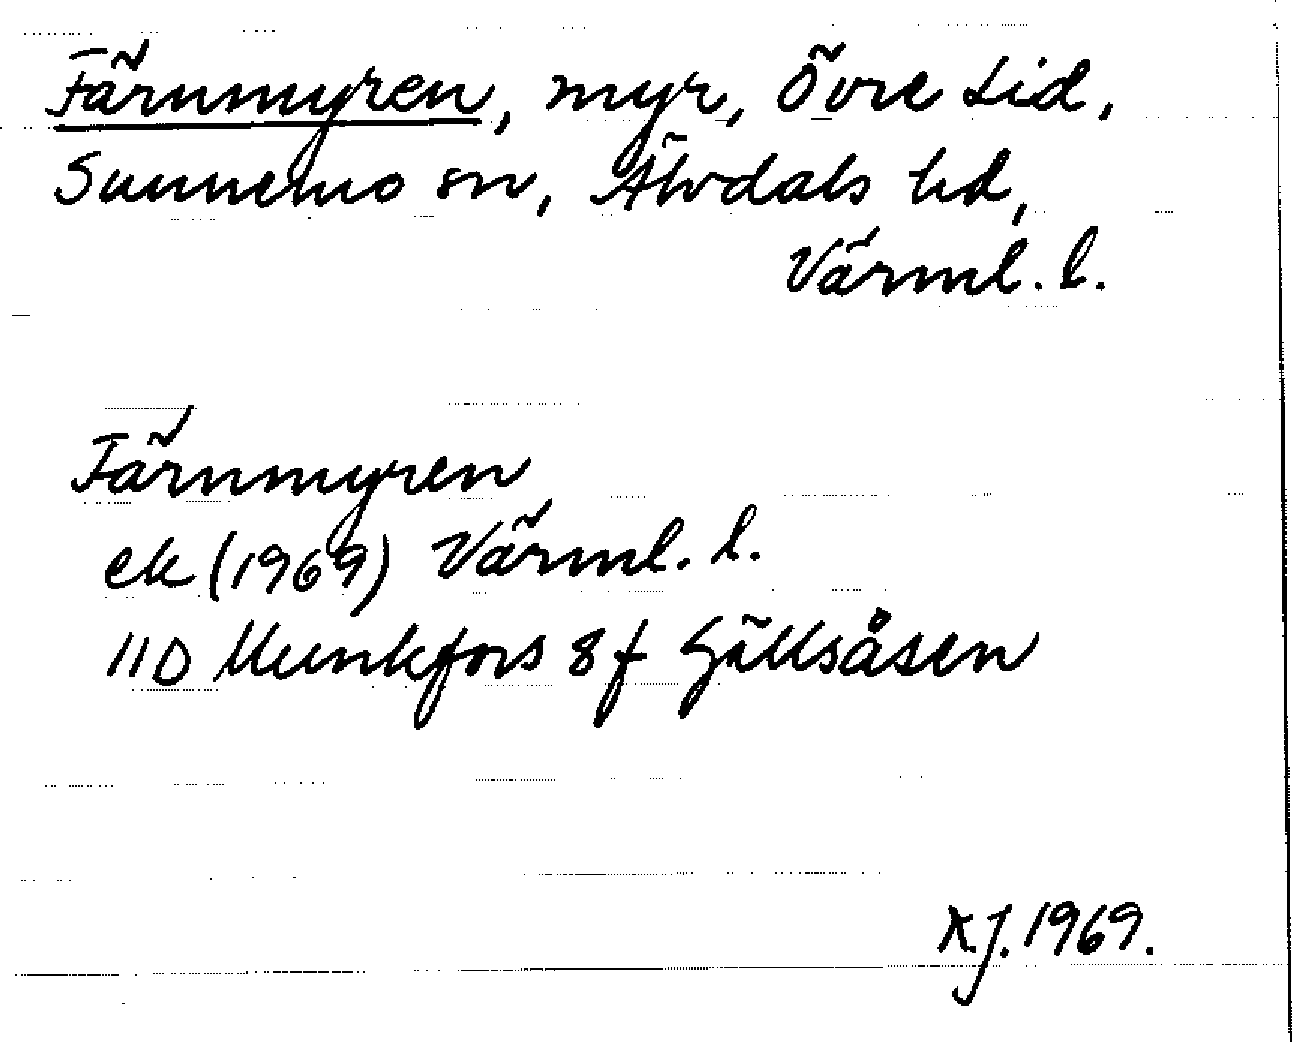 Färnmyren, myr, Övre Lid,
Sunnemo sn, Älvdals hd,
Värml. l.
Färnmyren
ek (1969) Värml. l.
11D Munkfors 8 f Gällsåsen
K.J. 1969.